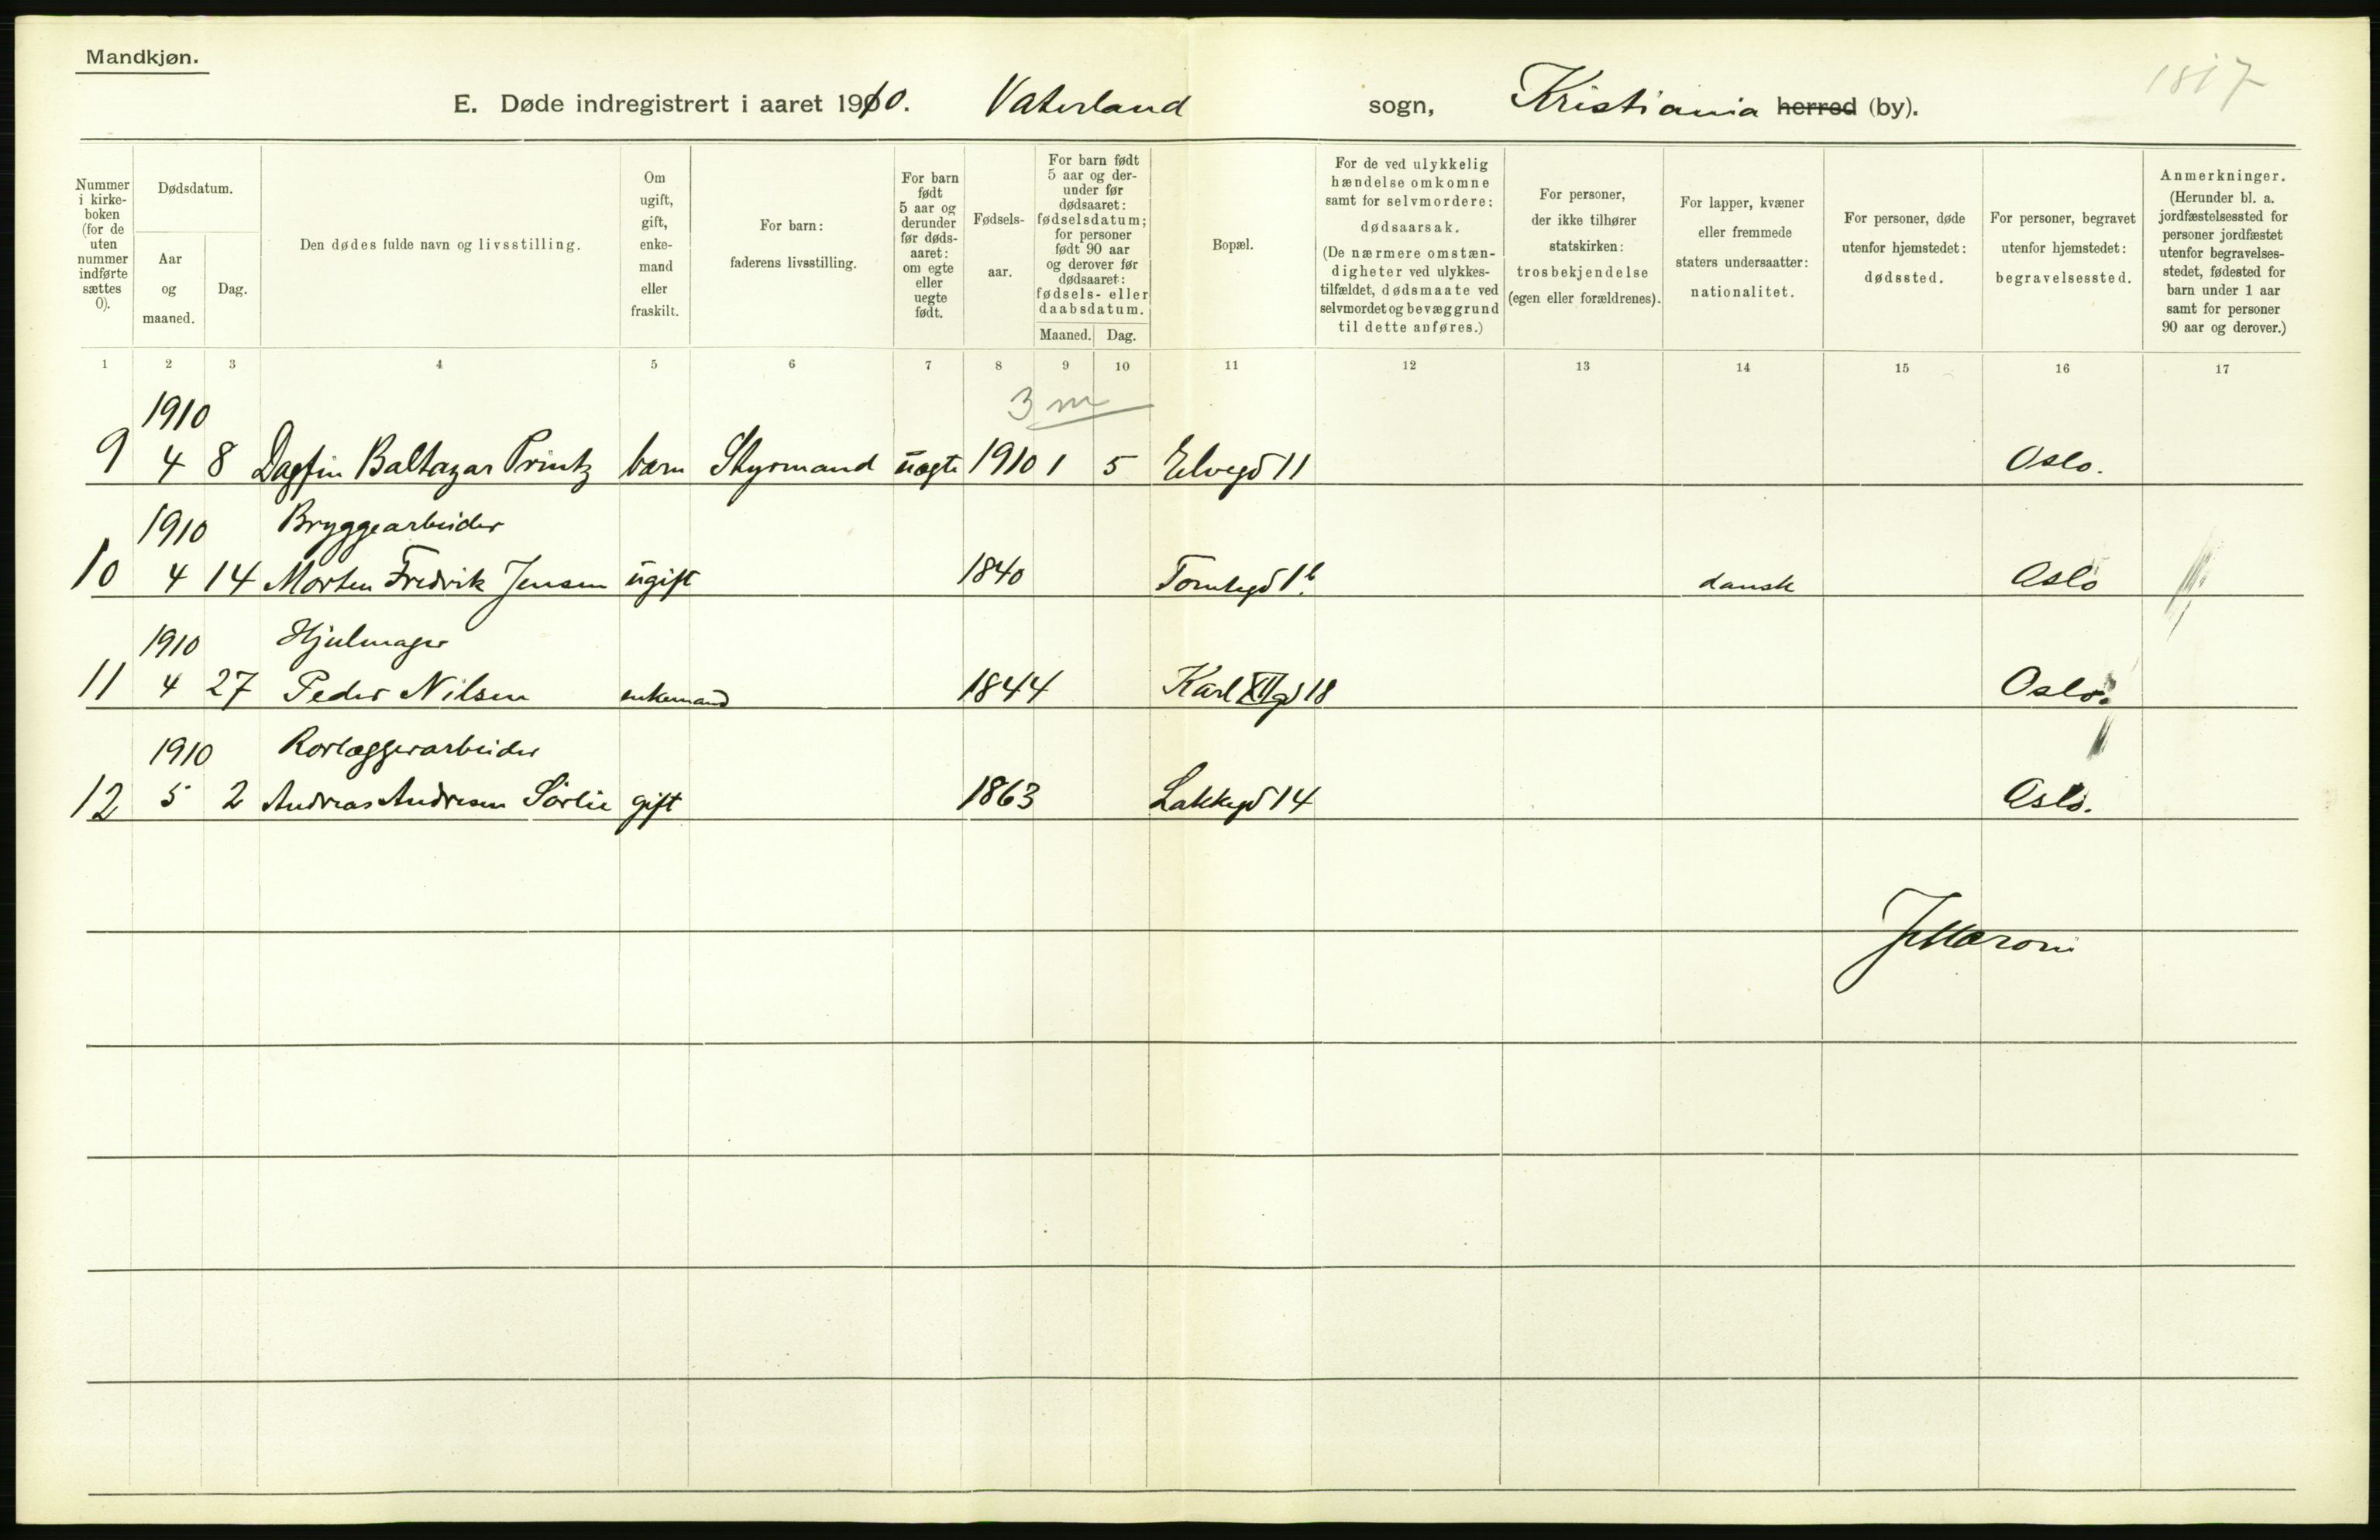 Mandkjøn.
1817
E. Døde indregistrert i aaret 1910. Vaterland sogn, Kristiania herred (by).
Nummer i kirkeboken (for de uten nummer indførte sættes 0).
Dødsdatum.
Aar og maaned.
Dag.
Den dødes fulde navn og livsstilling.
Om ugift, gift, enkemand eller fraskilt.
For barn: faderens livsstilling.
For barn født 5 aar og derunder før dødsaaret: om egte eller uegte født.
Fødselsaar.
For barn født 5 aar og derunder før dødsaaret: fødselsdatum; for personer født 90 aar og derover før dødsaaret: fødsels- eller daabsdatum.
Maaned. Dag.
Bopæl.
For de ved ulykkelig hændelse omkomne samt for selvmordere: dødsaarsak. (De nærmere omstændigheter ved ulykkestilfældet, dødsmaate ved selvmordet og bevæggrund til dette anføres.)
For personer, der ikke tilhører statskirken: trosbekjendelse (egen eller forældrenes).
For lapper, kvæner eller fremmede staters undersaatter: nationalitet.
For personer, døde utenfor hjemstedet: dødssted.
For personer, begravet utenfor hjemstedet: begravelsessted.
Anmerkninger. (Herunder bl. a. jordfæstelsessted for personer jordfæstet utenfor begravelsesstedet, fødested for barn under 1 aar samt for personer 90 aar og derover.)
1 2 3 4 5 6 7 8 9 10 11 12 13 14 15 16 17
1910 3 m
9 4 8 Dagfin Baltazar Printz barn Styrmand uægte 1910 1 5 Elvegd 11 Oslo.
1910 Bryggearbeider
10 4 14 Morten Fredrik Jensen ugift 1840 Tomtegd 1b. dansk Oslo
1910 Hjulmager
11 4 27 Peder Nilsen enkemand 1844 Karl XII gd 18 Oslo.
1910 Rorlæggerarbeider
12 5 2 Andreas Andresen Sörlie gift 1863 Lakkegd 14 Oslo.